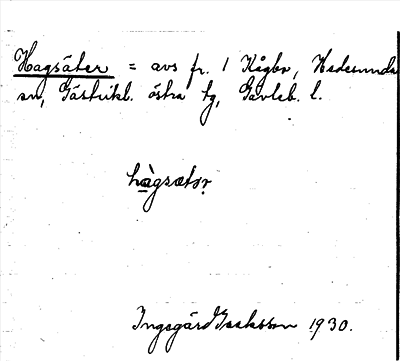 Hagsäter = avs fr. 1 Kågbo, Hedesunda
sn, Gästrikl. östra tg, Gävleb. l.
hàgsætər
Ingegärd Isaksson 1930.